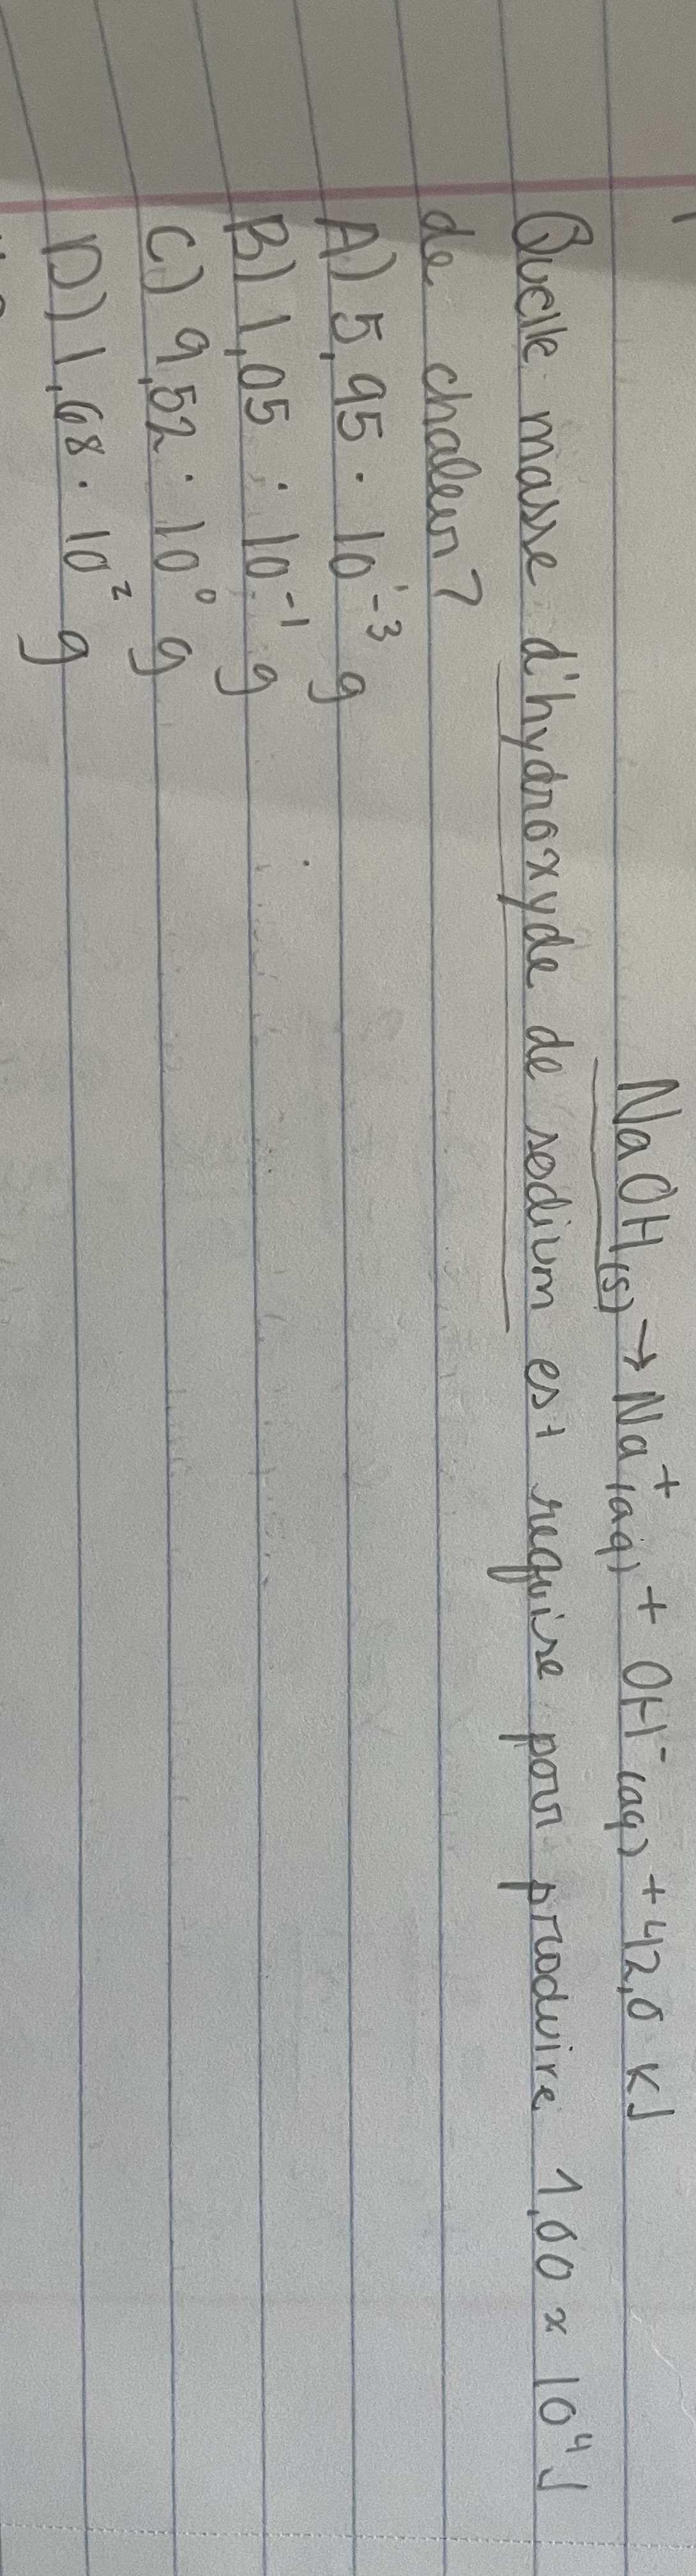 NaOH(s) → Na⁺(aq) + OH⁻(aq) + 42,0 KJ
Quelle masse d'hydroxyde de sodium est requise pour produire 1,00 x 10⁴ J
de chaleur?
A) 5,95 · 10⁻³ g
B) 1,05 · 10⁻¹ g
C) 9,52 · 10⁰ g
D) 1,68 · 10² g